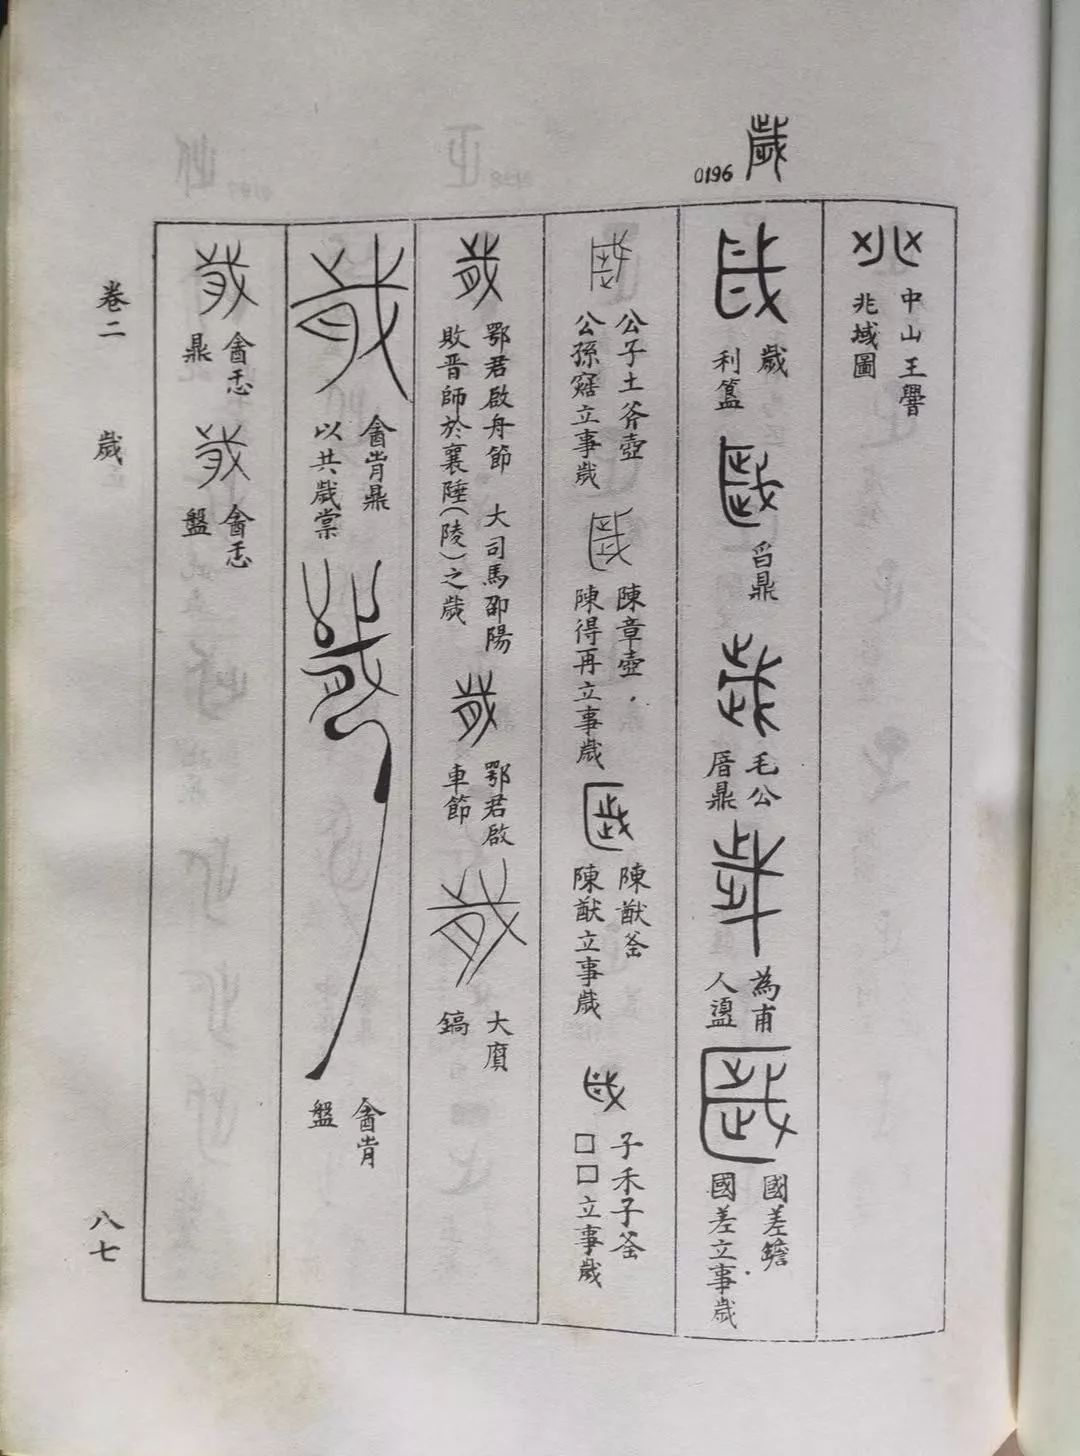 0196
中山王䇓
兆域圖
歲
利簋
舀鼎
毛公
厝鼎
為甫
人盨
國差𦉜
國差立事歲
公子土斧壺
公孫窹立事歲
陳章壺
陳得再立事歲
陳猷釜
陳猷立事歲
子禾子釜
□□立事歲
鄂君啟舟節 大司馬卲陽
敗晉師於襄陲(陵)之歲
鄂君啟
車節
大𠪚
鎬
酓肯鼎
以共歲棠
酓肯
盤
酓忎
鼎
酓忎
盤
卷二
歲
八七